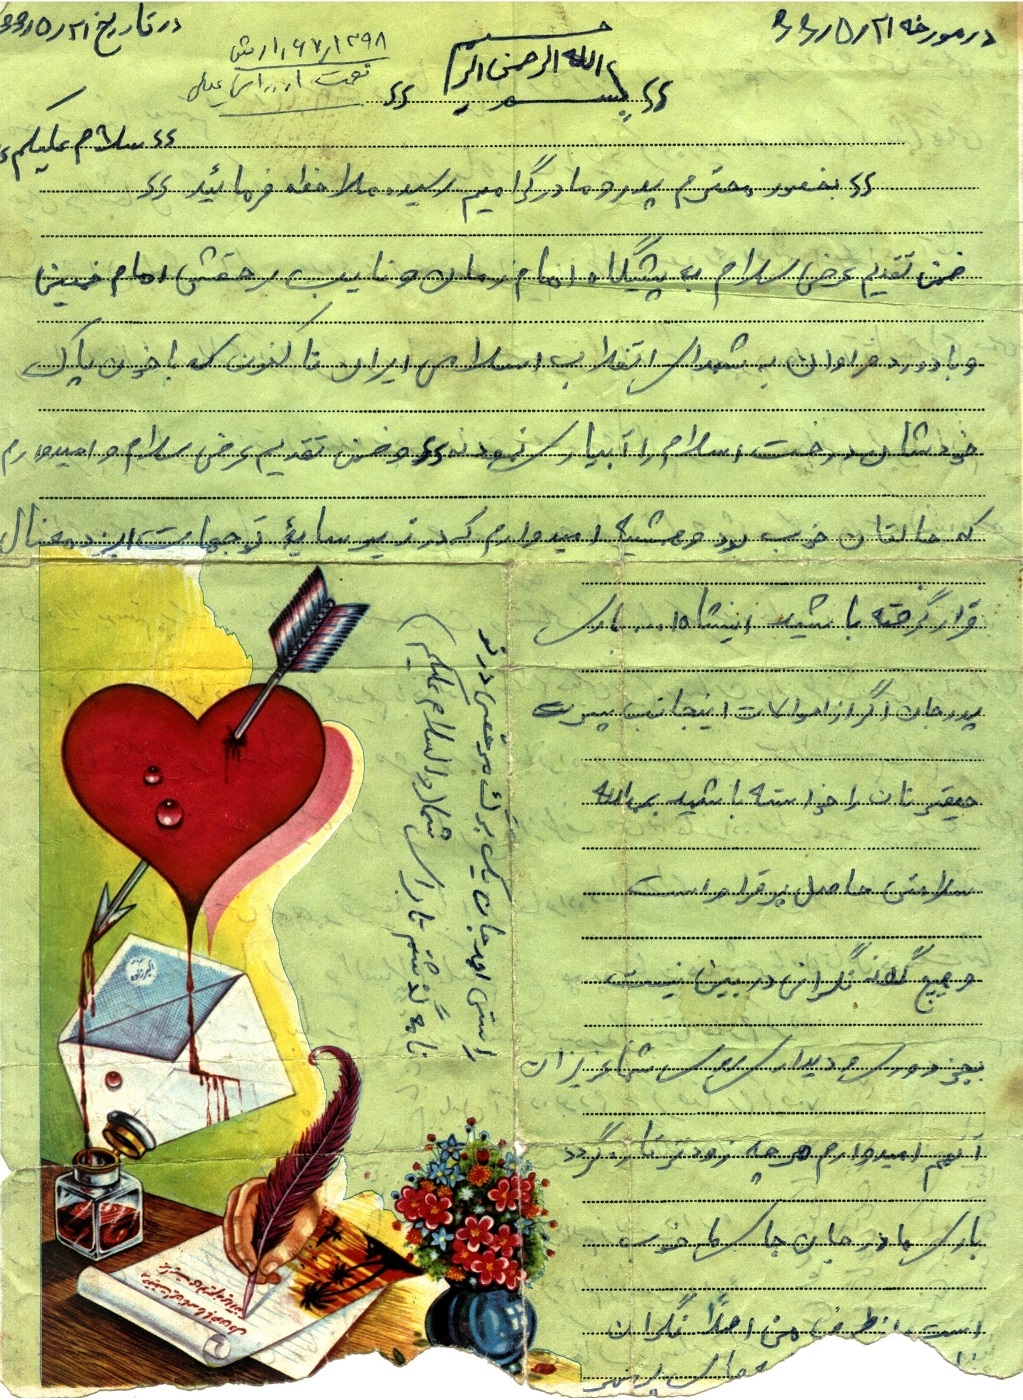 در مورخه ۲۱ر۵ر
در تاریخ ۲۱ر۵ر
بسم الله الرحمن الرحیم
سلام علیکم
بحضور محترم پدر و مادر گرامیم رسیده ملاحظه فرمائید
ضمن تقدیم عرض سلام به پیشگاه امام زمان و نایب برحقش امام خمینی
و با درود فراوان به شهدای انقلاب اسلامی ایران تا کنون که با خون پاک
خودشان درخت اسلام را آبیاری نمودند و ضمن تقدیم عرض سلام و امیدوارم
که حالتان خوب بود و همیشه امیدوارم که در زیر سایهٔ توجهات ایزد
قرار گرفته باشید انشاء ا... باری
پدر جان اگر از احوالات اینجانب پسر
حقیرتان را خواسته باشید
سلامتی حاصل برقرار است
و هیچ گونه نگرانی در بین نیست
بجز دوری و دیداری شما عزیزان
آنهم امیدوارم هر چه زودتر تازه گردد
باری مادر جان جای ما خوب
است از طرف من اصلاً نگران
راستی مادر جان یک برگ مرخصی در
نامه گذاشتم تا برای شما والسلام علیکم